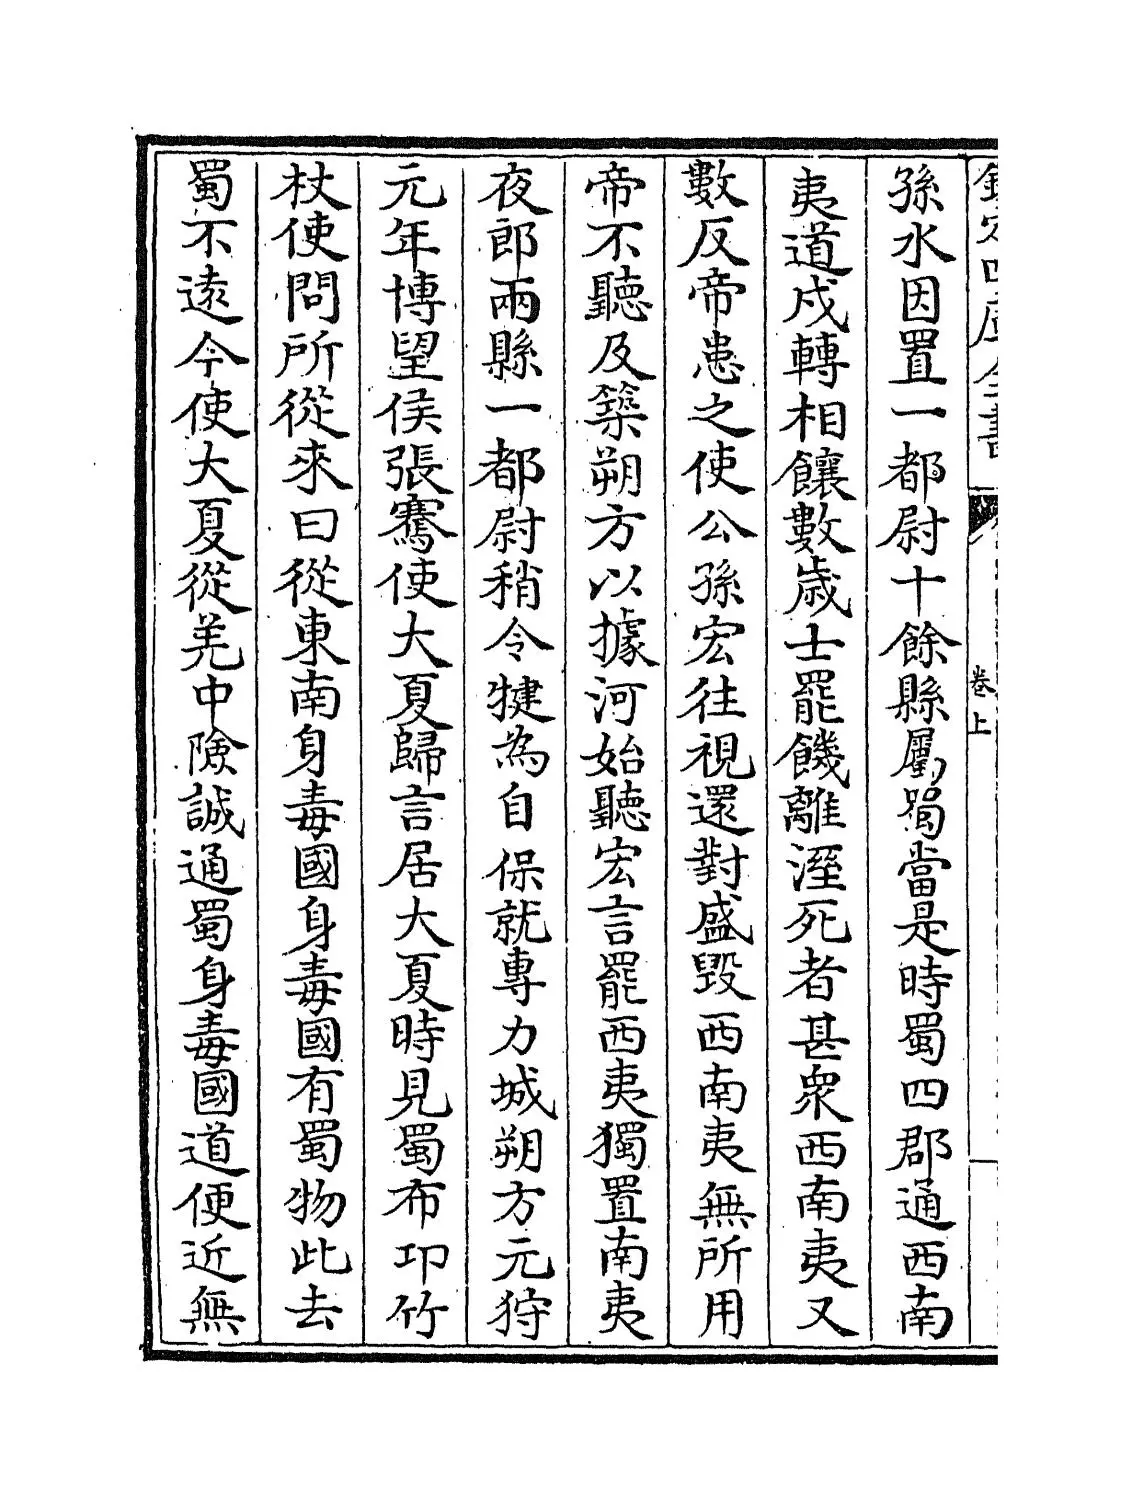 欽定四庫全書
卷上
孫水因置一都尉十餘縣屬蜀當是時蜀四郡通西南
夷道戍轉相饟數歲士罷餓離溼死者甚衆西南夷又
數反帝患之使公孫宏往視還對盛毀西南夷無所用
帝不聽及築朔方以據河始聽宏言罷西夷獨置南夷
夜郎兩縣一都尉稍令犍為自保就專力城朔方元狩
元年博望侯張騫使大夏歸言居大夏時見蜀布卭竹
杖使問所從來曰從東南身毒國身毒國有蜀物此去
蜀不逺今使大夏從羌中險誠通蜀身毒國道便近無